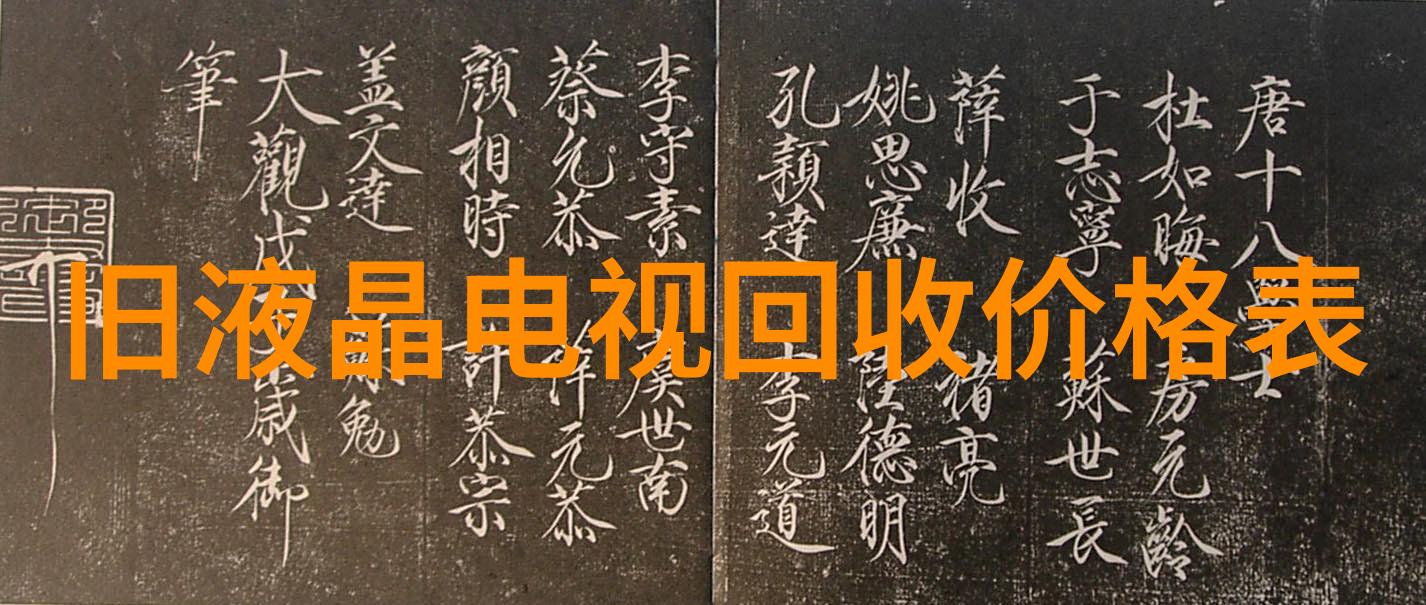 旧液晶电视回收价格表
唐十八學士
杜如晦 房元齡
于志寧 蘇世長
薛收 褚亮
姚思廉 陸德明
孔穎達 李元道
李守素 虞世南
蔡元恭 元恭
顏相時 許恭宗
盖文達 勉
大觀戊歲御
筆